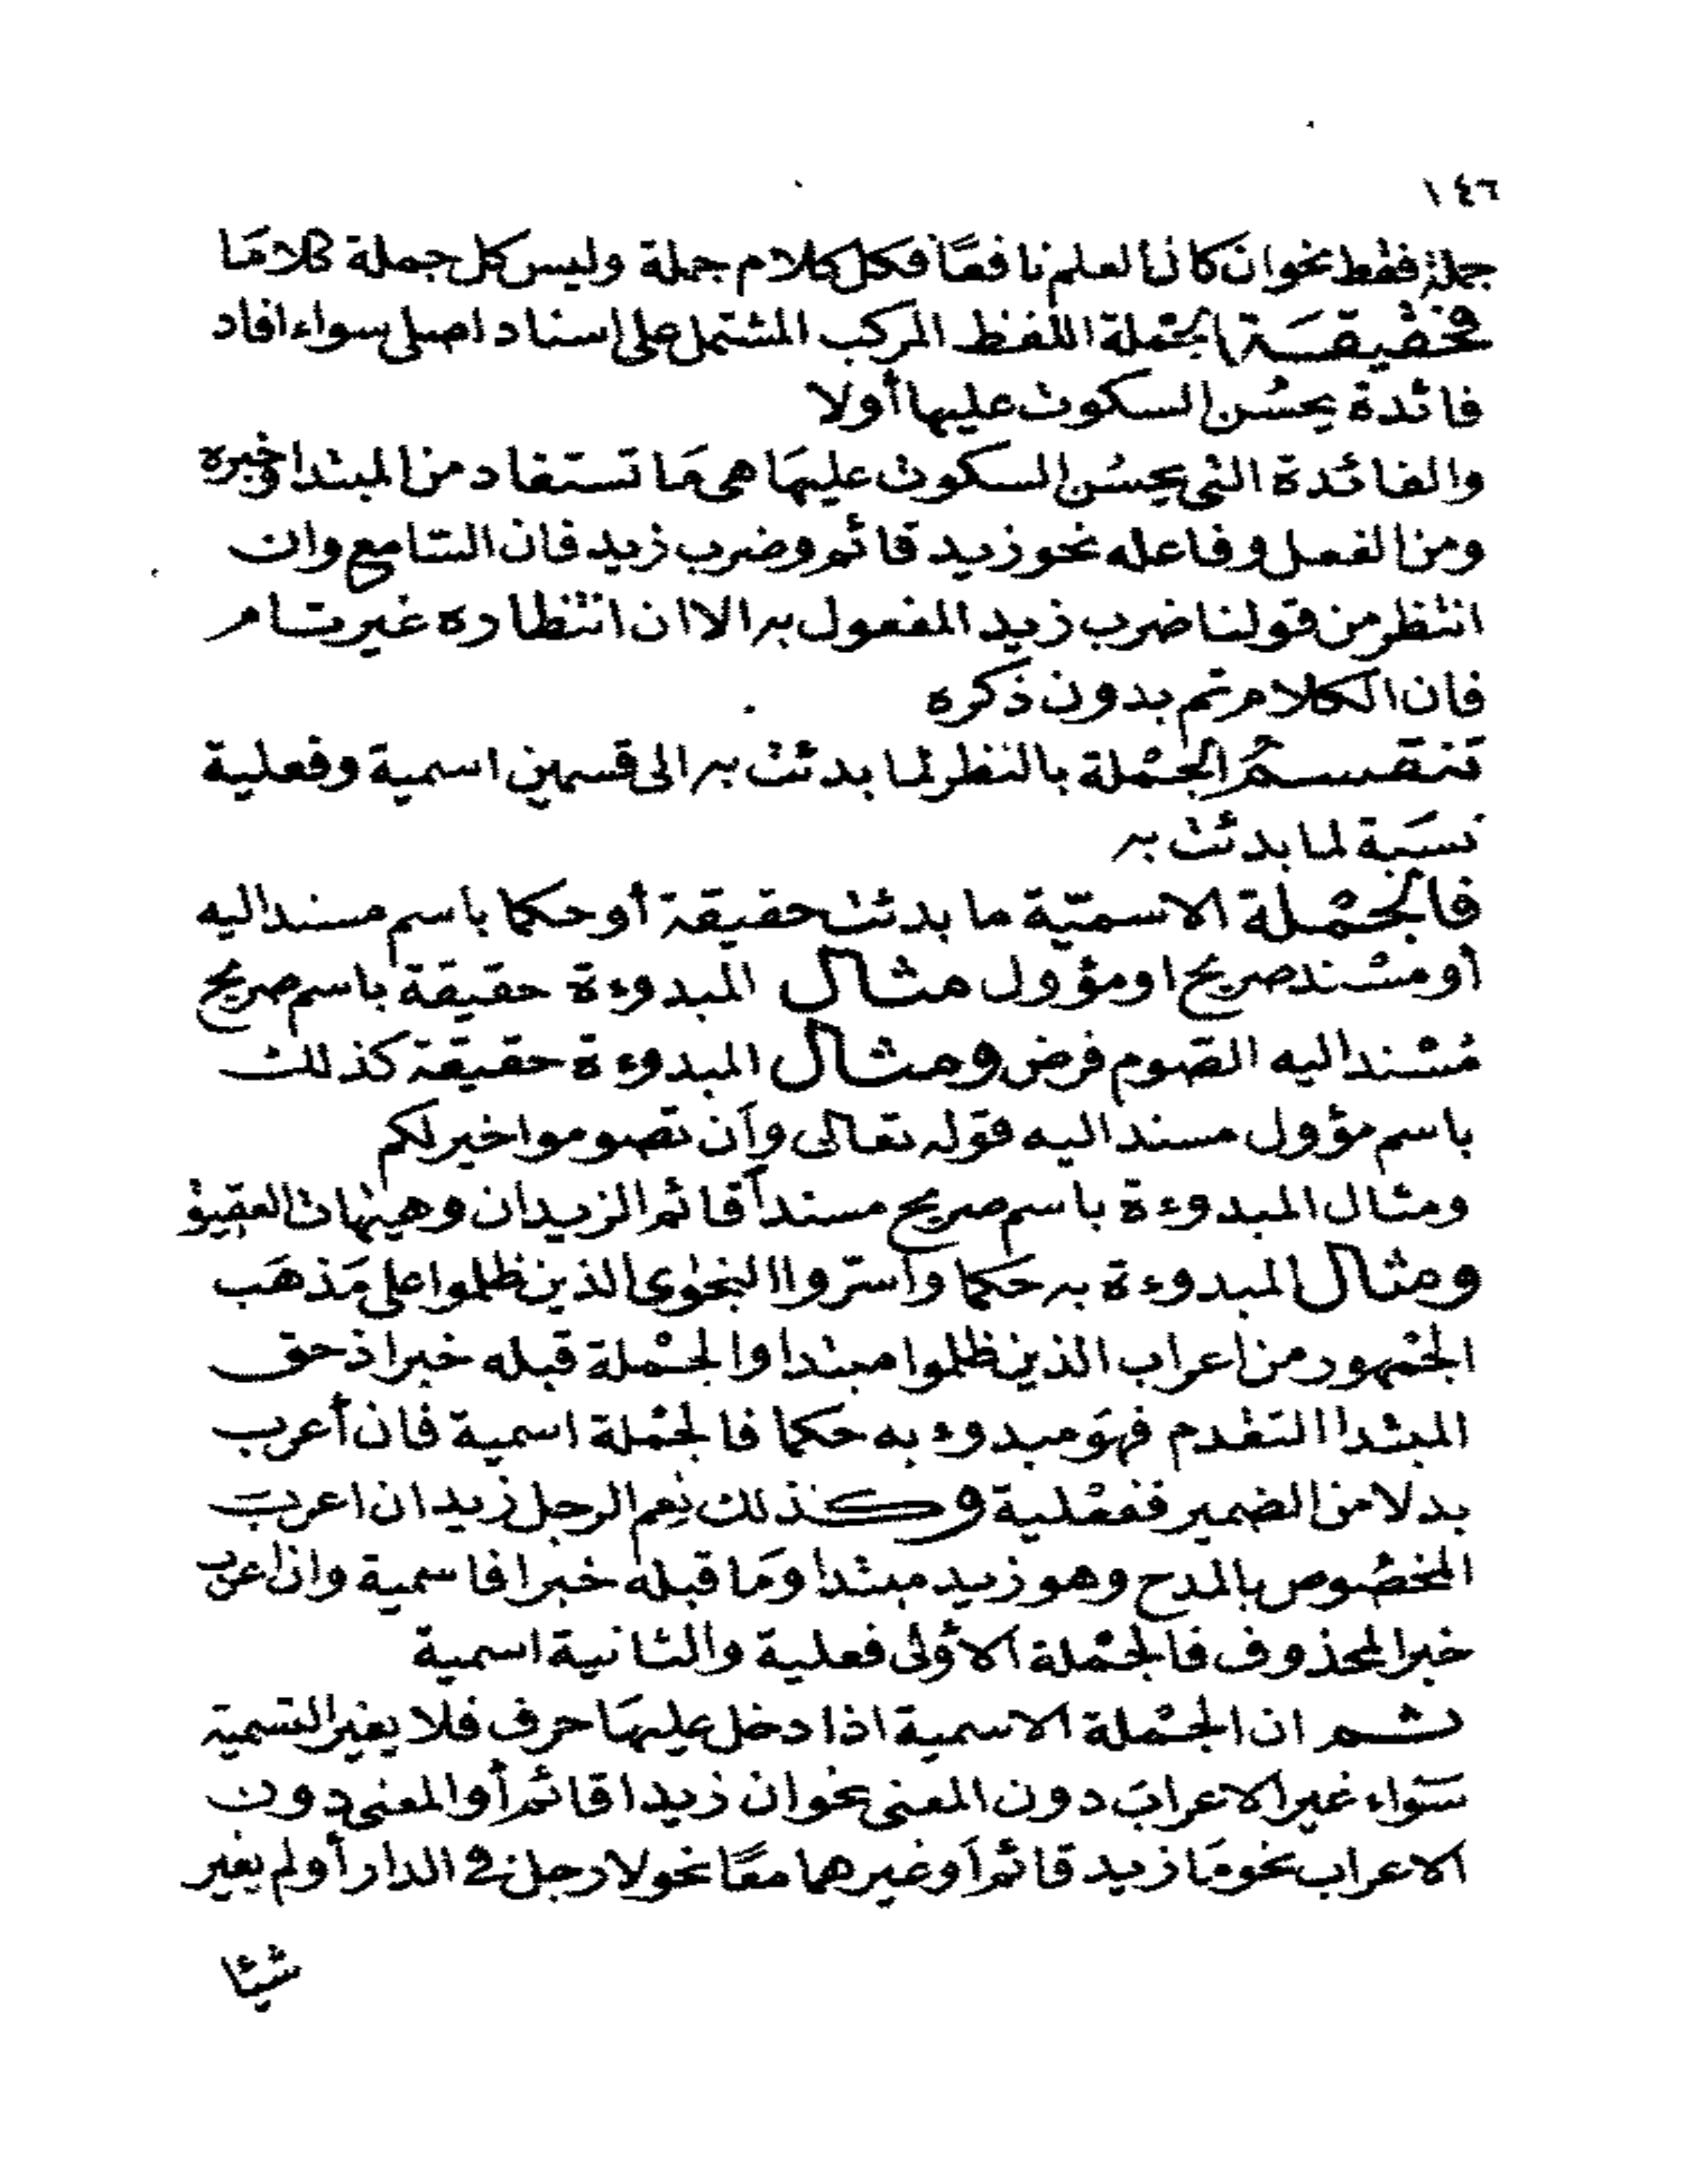 ١٤٦
جملة فقط نحو ان كان العلم نافعًا فكل كلام جملة وليس كل جملة كلامًا
فحقيقَة الجمْلة اللفظ المركب المشتمل على اسناد اصلى سواء افاد
فائدة يحسُن السكوت عليها أولا
والفائدة التى يحسُن السكوت عليهَا هى مَا تستفاد من المبتدا وخبره
ومن الفعل وفاعله نحو زيد قائم وضرب زيد فان السَامع وان
انتظر من قولنا ضرب زيد المفعول به الا ان انتظاره غير تام
فان الكلام تم بدون ذكره
تنقسمُ الجمْلة بالنظر لما بدئت به الى قسمين اسمية وفعلية
نسَبة لما بدئت به
فالجمْلة الاسميّة ما بدئت حقيقة أو حكما باسم مسند اليه
أو مسْند صريح او مؤول مثال المبدوءة حقيقة باسم صريح
مُسْند اليه الصّوم فرض ومثال المبدوءة حقيقة كذلك
باسم مؤول مسند اليه قوله تعالى وأن تصوموا خير لكم
ومثال المبدوءة باسم صريح مسنداً قائم الزيدان وهيهات العقيق
ومثال المبدوءة به حكما وأسرّوا النجوى الذين ظلموا على مَذهَب
الجمْهور من اعراب الذين ظلموا مبتدا والجمْلة قبله خبرا ذ حق
المبتدا التقدم فهوَ مبدوء به حكما فالجمْلة اسمية فان أعرب
بدلا من الضمير ففعْلية وكذلك نِعم الرجل زيد ان اعرب
المخصُوص بالمدح وهو زيد مبتدا ومَا قبله خبرا فاسمية وان اعرب
خبرا لمحذوف فالجمْلة الاؤلى فعلية والثانية اسمية
ثم ان الجمْلة الاسمية اذا دخل عليهَا حرف فلا يغير التسمية
سَوَاء غير الاعرابَ دون المعنى نحو ان زيدا قائم أو المعنى دون
الاعراب نحو مَا زيد قائم أو غيرهما معًا نحو لا رجل فى الدار أو لم يغير
شيئا